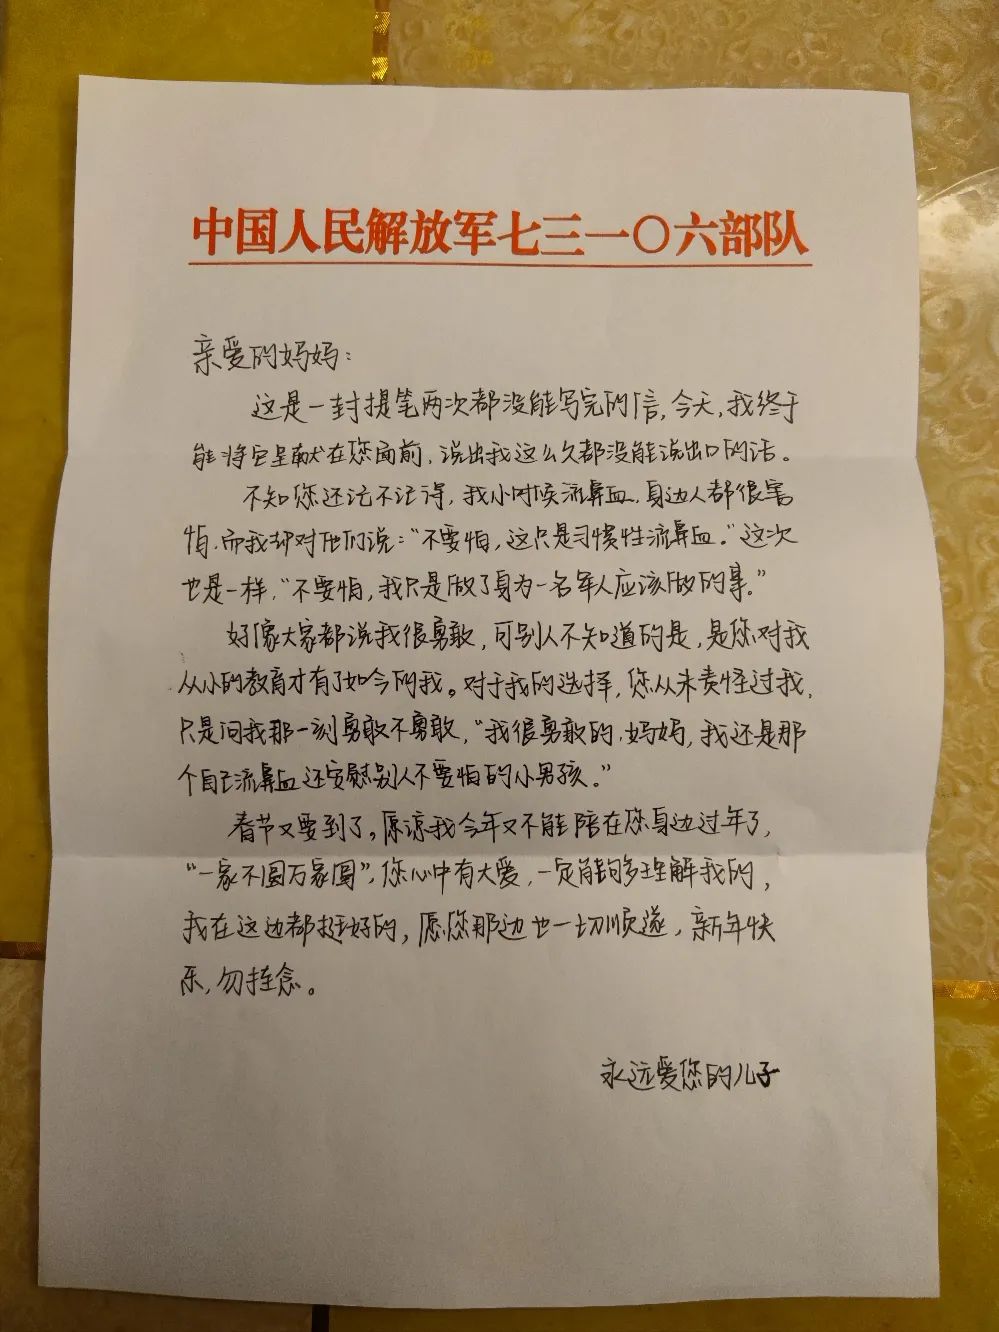 中国人民解放军七三一〇六部队
亲爱的妈妈：
这是一封提笔两次都没能写完的信，今天，我终于
能将它呈献在您面前，说出我这么久都没能说出口的话。
不知您还记不记得，我小时候流鼻血，身边人都很害
怕，而我却对他们说：“不要怕，这只是习惯性流鼻血。”这次
也是一样，“不要怕，我只是做了身为一名军人应该做的事。”
好像大家都说我很勇敢，可别人不知道的是，是您对我
从小的教育才有了如今的我。对于我的选择，您从未责怪过我，
只是问我那一刻勇敢不勇敢，“我很勇敢的，妈妈，我还是那
个自己流鼻血还安慰别人不要怕的小男孩。”
春节又要到了，原谅我今年又不能陪在您身边过年了，
“一家不圆万家圆”，您心中有大爱，一定能够多理解我的，
我在这边都挺好的，愿您那边也一切顺遂，新年快
乐，勿挂念。
永远爱您的儿子